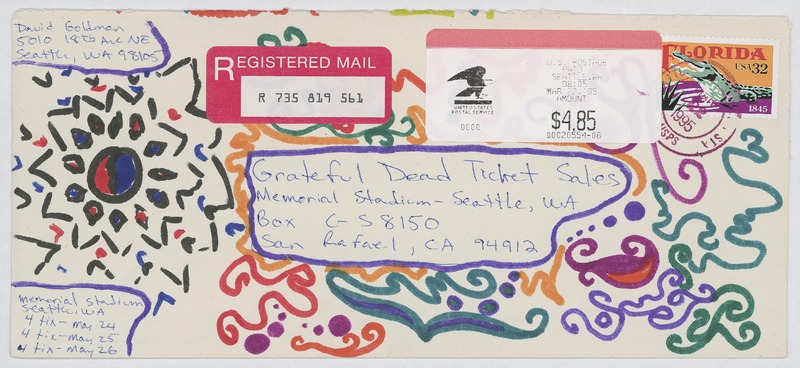 David Goldman
5010 18th Ave NE
Seattle, WA 98105
REGISTERED MAIL
R 735 819 561
UNITED STATES
POSTAL SERVICE
0000
U.S. POSTAGE
PAID
SEATTLE, WA
98105
MAR 22, 95
AMOUNT
$4.85
00020554-06
FLORIDA
USA 32
1845
1995
USPS
Grateful Dead Ticket Sales
Memorial Stadium - Seattle, WA
Box C-S 8150
San Rafael, CA 94912
memorial stadium
seattle, WA
4 tix - may 24
4 tix - may 25
4 tix - May 26